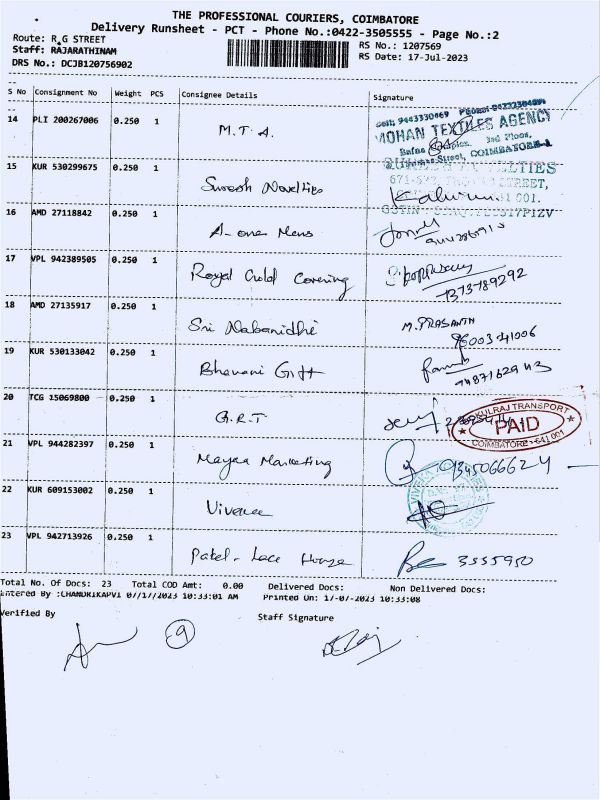 THE PROFESSIONAL COURIERS, COIMBATORE
Delivery Runsheet - PCT - Phone No.:0422-3505555 - Page No.:2
Route: R.G STREET
RS No.: 1207569
Staff: RAJARATHINAM
RS Date: 17-Jul-2023
DRS No.: DCJB120756902
S No Consignment No Weight PCS Consignee Details Signature
14 PLI 200267006 0.250 1 M.T.A.
Cell: 9443330469
MOHAN TEXTILES AGENCY
3rd Floor,
Street, COIMBATORE-1
15 KUR 530299675 0.250 1 Suresh Novelties
STREET,
16 AMD 27118842 0.250 1 A-one Mens
17 VPL 942389505 0.250 1 Royal Gold Covering
7373789292
18 AMD 27135917 0.250 1 Sri Nabanidhi M. PRASANTH
96003 41006
19 KUR 530133042 0.250 1 Bhavani Gift
20 TCG 15069800 0.250 1 G.R.T
KULRAJ TRANSPORT
PAID
COIMBATORE - 641 001
21 VPL 944282397 0.250 1 Mayaa Marketing 9345066624
22 KUR 609153002 0.250 1
23 VPL 942713926 0.250 1 Patel - Lace House 3555950
Total No. Of Docs: 23 Total COD Amt: 0.00 Delivered Docs: Non Delivered Docs:
Entered By :CHANDRIKAPVI 07/17/2023 10:33:01 AM Printed On: 17-07-2023 10:33:08
Verified By Staff Signature
9